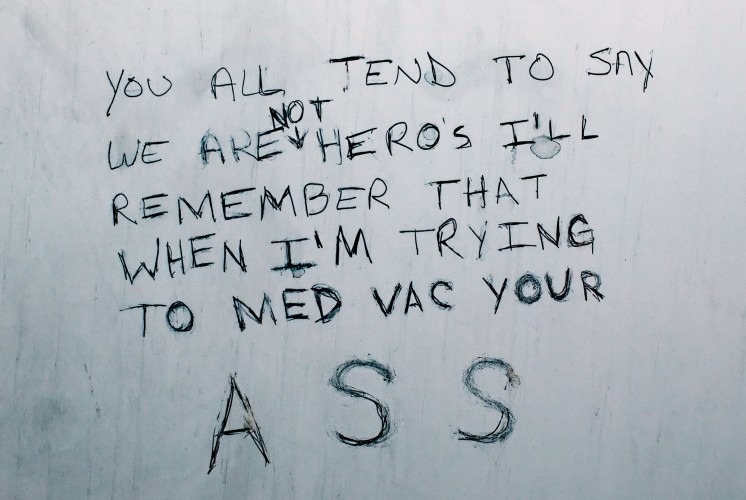 YOU ALL TEND TO SAY
NOT
WE ARE HERO'S I'LL
REMEMBER THAT
WHEN I'M TRYING
TO MED VAC YOUR
ASS